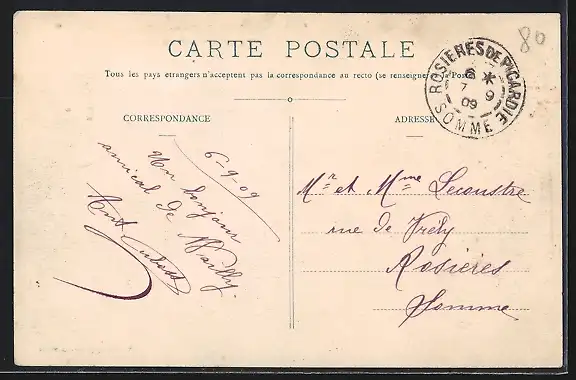 80
CARTE POSTALE
Tous les pays etrangers n'acceptent pas la correspondance au recto (se renseigner à la Poste)
ROSIERES DE PICARDIE
6 *
7 9
09
SOMME
CORRESPONDANCE
ADRESSE
6-9-09
Un bonjour
amical de Wailly.
Mr et Mme Lecoustre
rue de Vrély
Rosieres
Somme